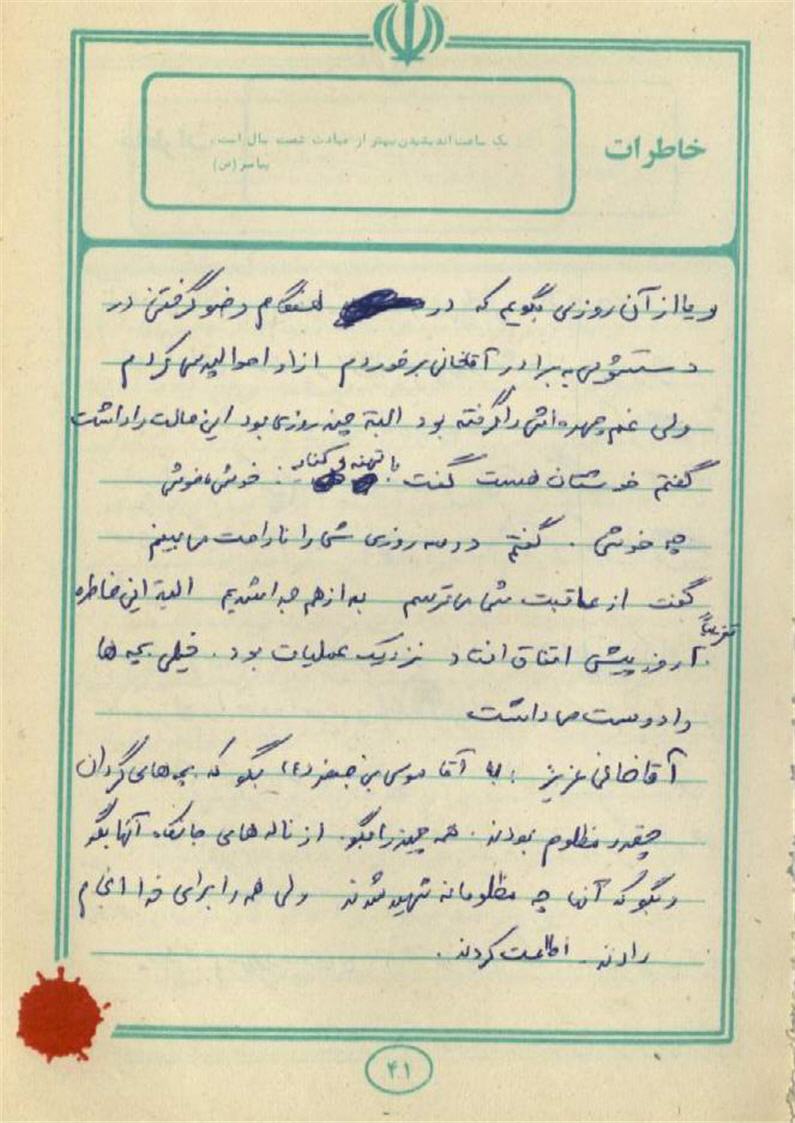 خاطرات
یک ساعت اندیشیدن بهتر از عبادت شصت سال است.
پیامبر (ص)
و یا از آن روزی بگویم که در هنگام وضو گرفتن در
دستشویی به برادر آقاخانی برخوردم از او احوالپرسی کردم
ولی غم چهره‌اش را گرفته بود البته چند روزی بود این حالت را داشت
گفتم خوشتان هست گفت با : خوشی ناخوشی
چه خوشی . گفتم در سه روزی شما را ناراحت می‌بینم
گفت از عاقبت شما می‌ترسم بعد از هم جدا شدیم البته این خاطره
تقریباً
۲۰ روز پیش اتفاق افتاد نزدیک عملیات بود . خیلی بچه ها
را دوست می داشت
آقاخانی عزیز : به آقا موسی بن جعفر (ع) بگو که بچه های گردان
چقدر مظلوم بودند . همه چیز را بگو . از ناله های جانکاه آنها بگو
و بگو که آنها چه مظلومانه شهید شدند ولی همه را برای خدا انجام
دادند . اطاعت کردند .
۴۱